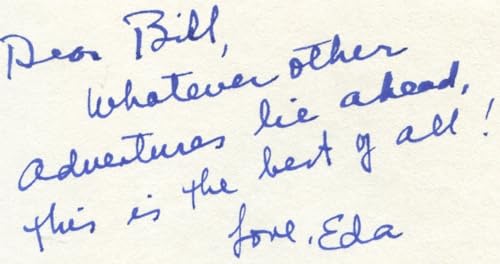 Dear Bill,
Whatever other
adventures lie ahead,
this is the best of all!
Love, Eda